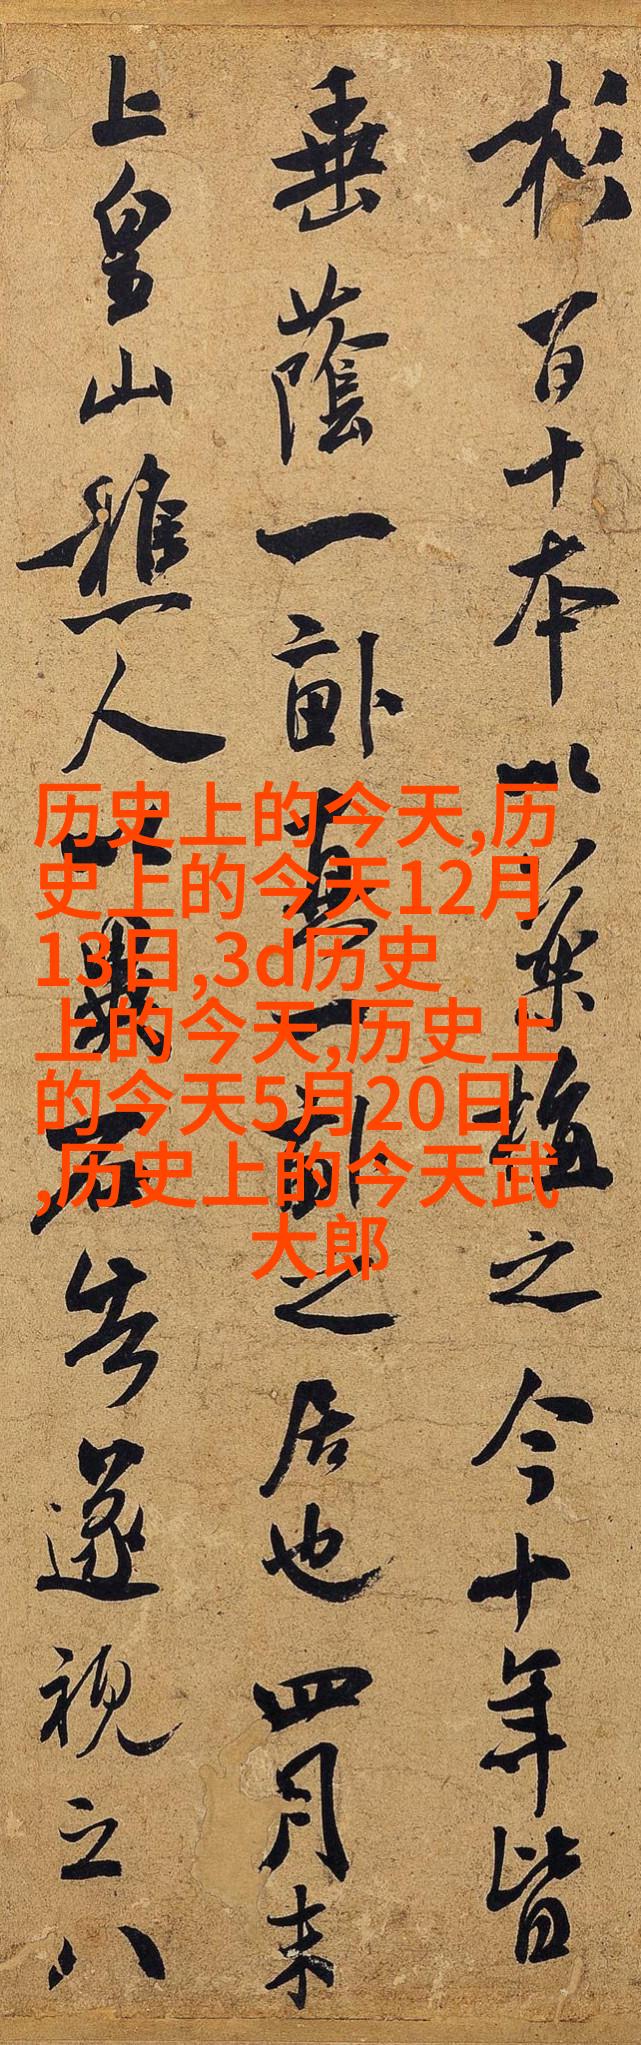 杉百十本以藥植之今十年皆
垂蔭一畝真一畝之居也四月末
上皇山樵人以異石告遂視之八
历史上的今天,历
史上的今天12月
13日,3d历史
上的今天,历史上
的今天5月20日
,历史上的今天武
大郎